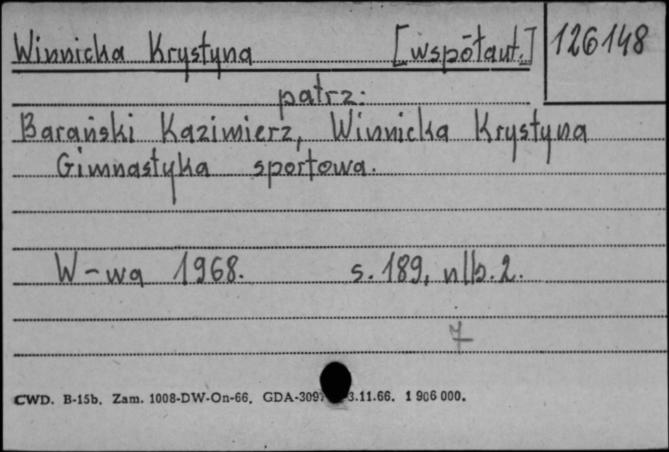 Winnicka Krystyna [współaut.] 126148
patrz:
Barański Kazimierz, Winnicka Krystyna
Gimnastyka sportowa.
W-wa 1968. s. 189, nlb. 2.
7
CWD. B-15b. Zam. 1008-DW-On-66. GDA-309 3.11.66. 1 906 000.